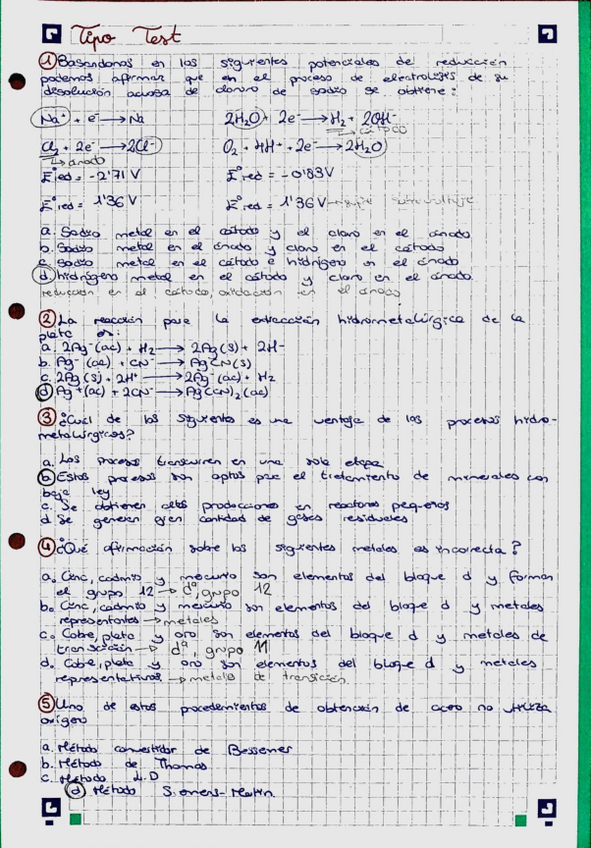 Tipo Test
① Basandonos en los siguientes potenciales de reducción
podemos afirmar que en el proceso de electrólisis de su
disolución acuosa de cloruro de sodio se obtiene:
Na⁺ + e⁻ → Na 2H₂O + 2e⁻ → H₂ + 2OH⁻
→ cátodo
Cl₂ + 2e⁻ → 2Cl⁻ O₂ + 4H⁺ + 2e⁻ → 2H₂O
→ ánodo
E°red = -2'71 V E°red = -0'83 V
E°red = 1'36 V E°red = 1'36 V
a. Sodio metal en el cátodo y el cloro en el ánodo
b. Sodio metal en el ánodo y cloro en el cátodo
c. Sodio metal en el cátodo e hidrógeno en el ánodo
d. hidrógeno metal en el cátodo y cloro en el ánodo.
reducción en el cátodo, oxidación en el ánodo
② La reacción para la extracción hidrometalúrgica de la
plata es:
a. 2Ag⁺(ac) + H₂ → 2Ag(s) + 2H⁺
b. Ag⁺(ac) + CN⁻ → AgCN(s)
c. 2Ag(s) + 2H⁺ → 2Ag⁺(ac) + H₂
d. Ag⁺(ac) + 2CN⁻ → Ag(CN)₂(ac)
③ ¿Cuál de los siguientes es una ventaja de los procesos hidro-
metalúrgicos?
a. Los procesos transcurren en una sola etapa
b. Estos procesos son aptos para el tratamiento de minerales con
baja ley
c. Se obtienen altas producciones en reactores pequeños
d. Se generan gran cantidad de gases residuales
④ ¿Qué afirmación sobre los siguientes metales es incorrecta?
a. Cinc, cadmio y mercurio son elementos del bloque d y forman
el grupo 12 → d¹⁰, grupo 12
b. Cinc, cadmio y mercurio son elementos del bloque d y metales
representativos → metales
c. Cobre, plata y oro son elementos del bloque d y metales de
transición → d⁹, grupo 11
d. Cobre, plata y oro son elementos del bloque d y metales
representativos → metales de transición.
⑤ Uno de estos procedimientos de obtención de acero no utiliza
oxígeno
a. Método convertidor de Bessemer
b. Método de Thomas
c. Método L.D
d. Método Siemens-Martin.